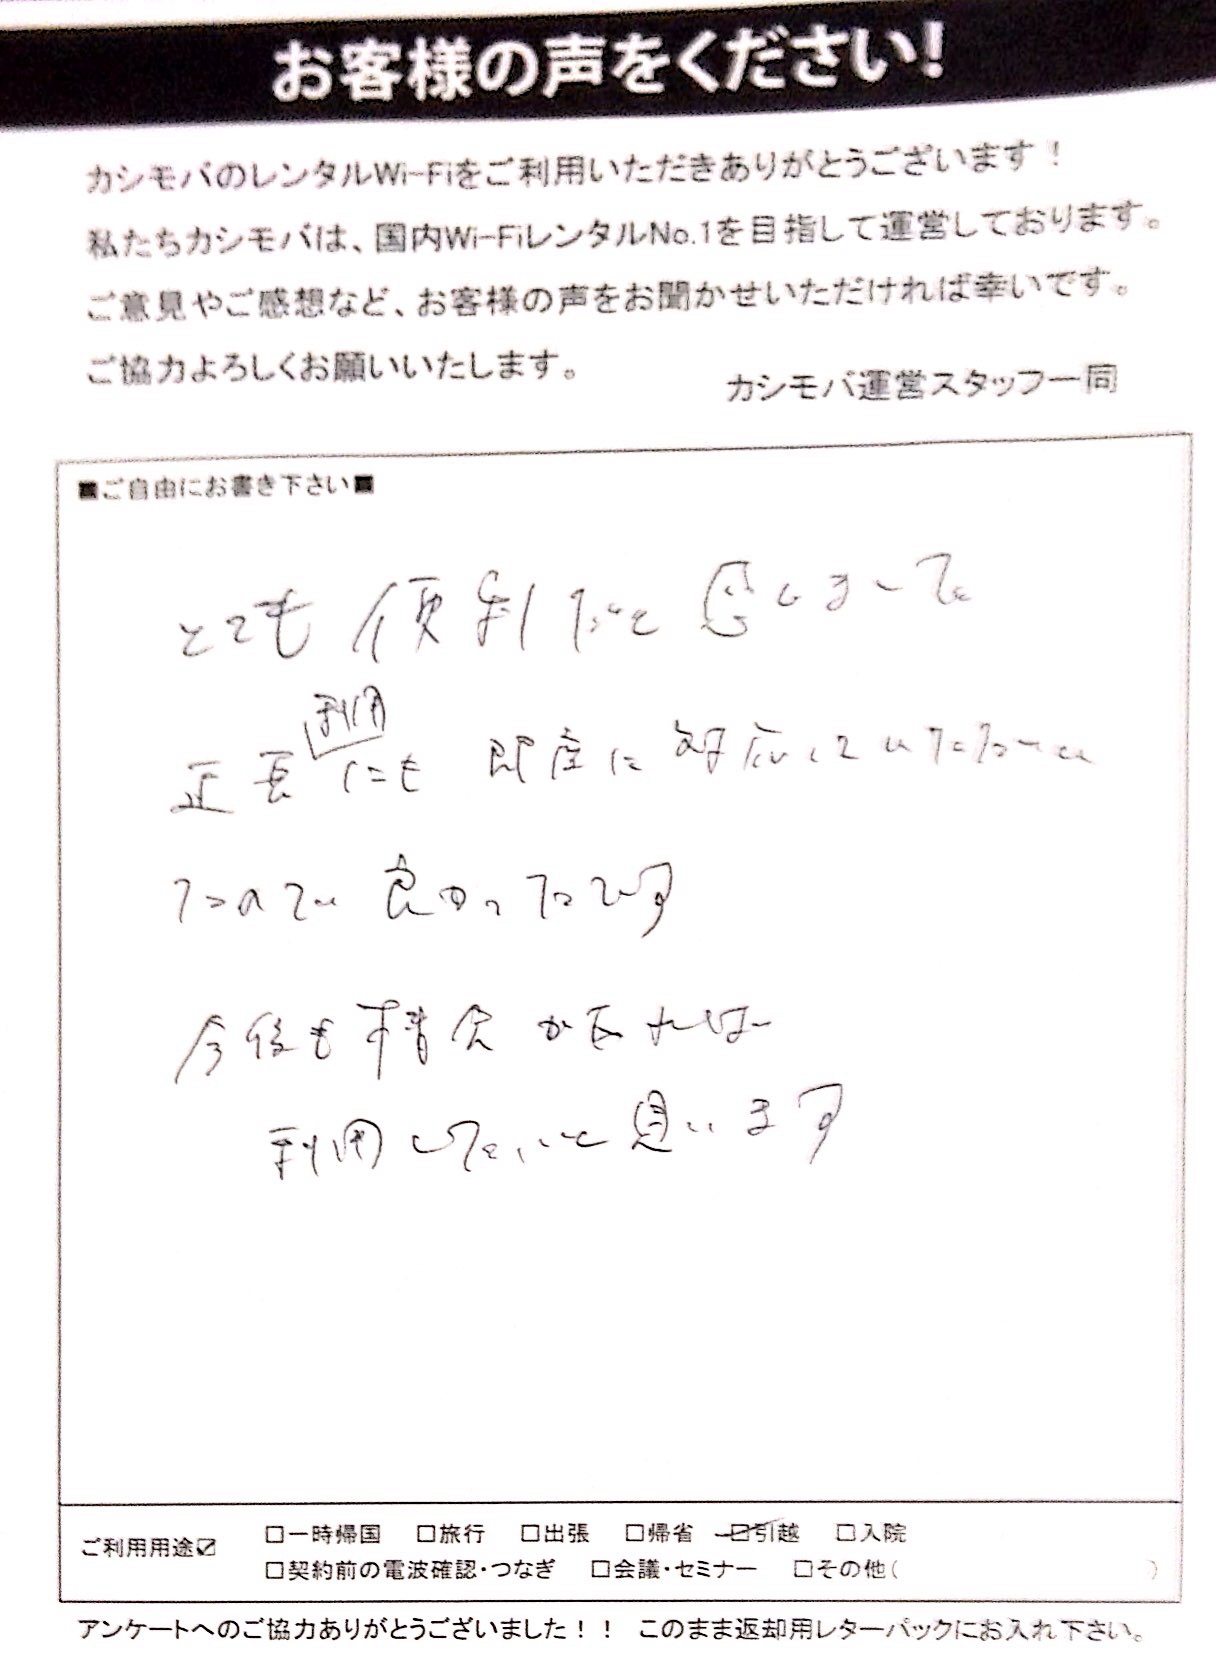 お客様の声をください!
カシモバのレンタルWi-Fiをご利用いただきありがとうございます！
私たちカシモバは、国内Wi-FiレンタルNo.1を目指して運営しております。
ご意見やご感想など、お客様の声をお聞かせいただければ幸いです。
ご協力よろしくお願いいたします。
カシモバ運営スタッフ一同
■ご自由にお書き下さい■
とても便利だと感じました
利用
延長にも即座に対応していただい
たので良かったです
今後も機会があれば
利用したいと思います
ご利用用途☑ □一時帰国 □旅行 □出張 □帰省 ☑引越 □入院
□契約前の電波確認・つなぎ □会議・セミナー □その他( )
アンケートへのご協力ありがとうございました！！ このまま返却用レターパックにお入れ下さい。